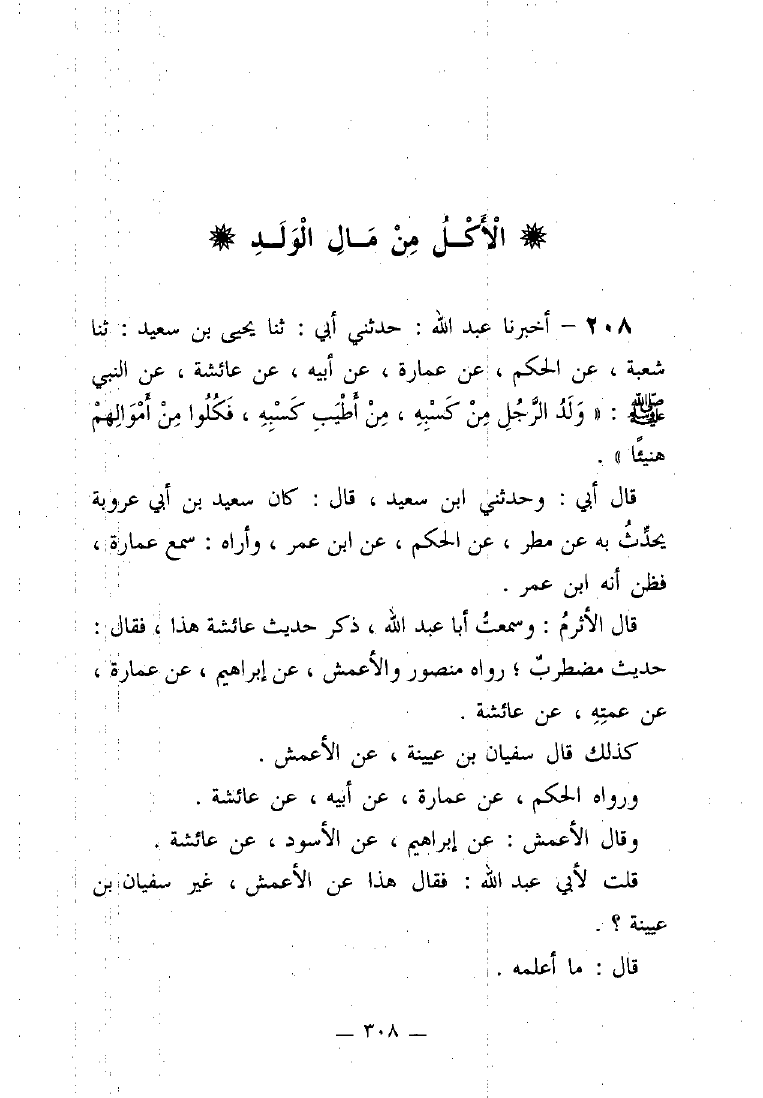 ❋ الْأَكْـلُ مِنْ مَـالِ الْوَلَـدِ ❋
٢٠٨ – أخبرنا عبد الله : حدثني أبي : ثنا يحيى بن سعيد : ثنا
شعبة ، عن الحكم ، عن عمارة ، عن أبيه ، عن عائشة ، عن النبي
ﷺ : « وَلَدُ الرَّجُلِ مِنْ كَسْبِهِ ، مِنْ أَطْيَبِ كَسْبِهِ ، فَكُلُوا مِنْ أَمْوَالِهِمْ
هنيئًا » .
قال أبي : وحدثني ابن سعيد ، قال : كان سعيد بن أبي عروبة
يحدِّثُ به عن مطر ، عن الحكم ، عن ابن عمر ، وأراه : سمع عمارة ،
فظن أنه ابن عمر .
قال الأثرمُ : وسمعتُ أبا عبد الله ، ذكر حديث عائشة هذا ، فقال :
حديث مضطربٌ ؛ رواه منصور والأعمش ، عن إبراهيم ، عن عمارة ،
عن عمتِهِ ، عن عائشة .
كذلك قال سفيان بن عيينة ، عن الأعمش .
ورواه الحكم ، عن عمارة ، عن أبيه ، عن عائشة .
وقال الأعمش : عن إبراهيم ، عن الأسود ، عن عائشة .
قلت لأبي عبد الله : فقال هذا عن الأعمش ، غير سفيان بن
عيينة ؟ .
قال : ما أعلمه .
— ٣٠٨ —